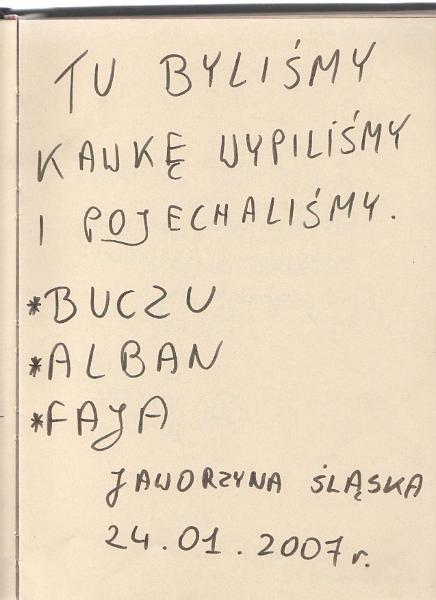 TU BYLIŚMY
KAWKĘ WYPILIŚMY
I POJECHALIŚMY.
*BUCZU
*ALBAN
*FAJA
JAWORZYNA ŚLĄSKA
24.01.2007 r.